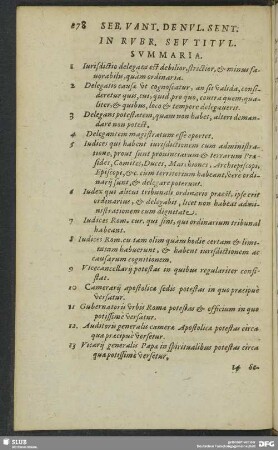 878 SEB. VANT. DE NVL. SENT.
IN RVBR. SEV TITVL.
SVMMARIA.
1 Iurisdictio delegata est debilior, strictior, & minus fa-
uorabilis, quàm ordinaria.
2 Delegatio causæ vt cognoscatur, an sit valida, consi-
deretur quis, cui, quid, pro quo, contra quem, qua-
liter, & quibus, loco & tempore delegauerit.
3 Delegans potestatem, quam non habet, alteri deman-
dare non potest.
4 Delegantem magistratum esse oportet.
5 Iudices qui habent iurisdictionem cum administra-
tione, prout sunt prouinciarum & terrarum Præ-
sides, Comites, Duces, Marchiones, Archiepiscopi,
Episcopi, &c. cum territorium habeant, verè ordi-
narij sunt, & delegare poterunt.
6 Iudex qui alicui tribunali ordinario præest, ipse erit
ordinarius, & delegabit, licet non habeat admi-
nistrationem cum dignitate.
7 Iudices Rom. cur. qui sint, qui ordinarium tribunal
habeant.
8 Iudices Rom. cu. tam olim quàm hodie certam & limi-
tatam habuerunt, & habent iurisdictionem ac
causarum cognitionem.
9 Vicecancellarij potestas in quibus regulariter consi-
stat.
10 Camerarij apostolicæ sedis potestas in quo præcipuè
versatur.
11 Gubernatoris Vrbis Romæ potestas & officium in quo
potissimè versatur.
12 Auditoris generalis cameræ Apostolicæ potestas circa
quæ præcipuè versetur.
13 Vicarij generalis Papæ in spiritualibus potestas circa
quæ potissimè versetur.
14
SLUB